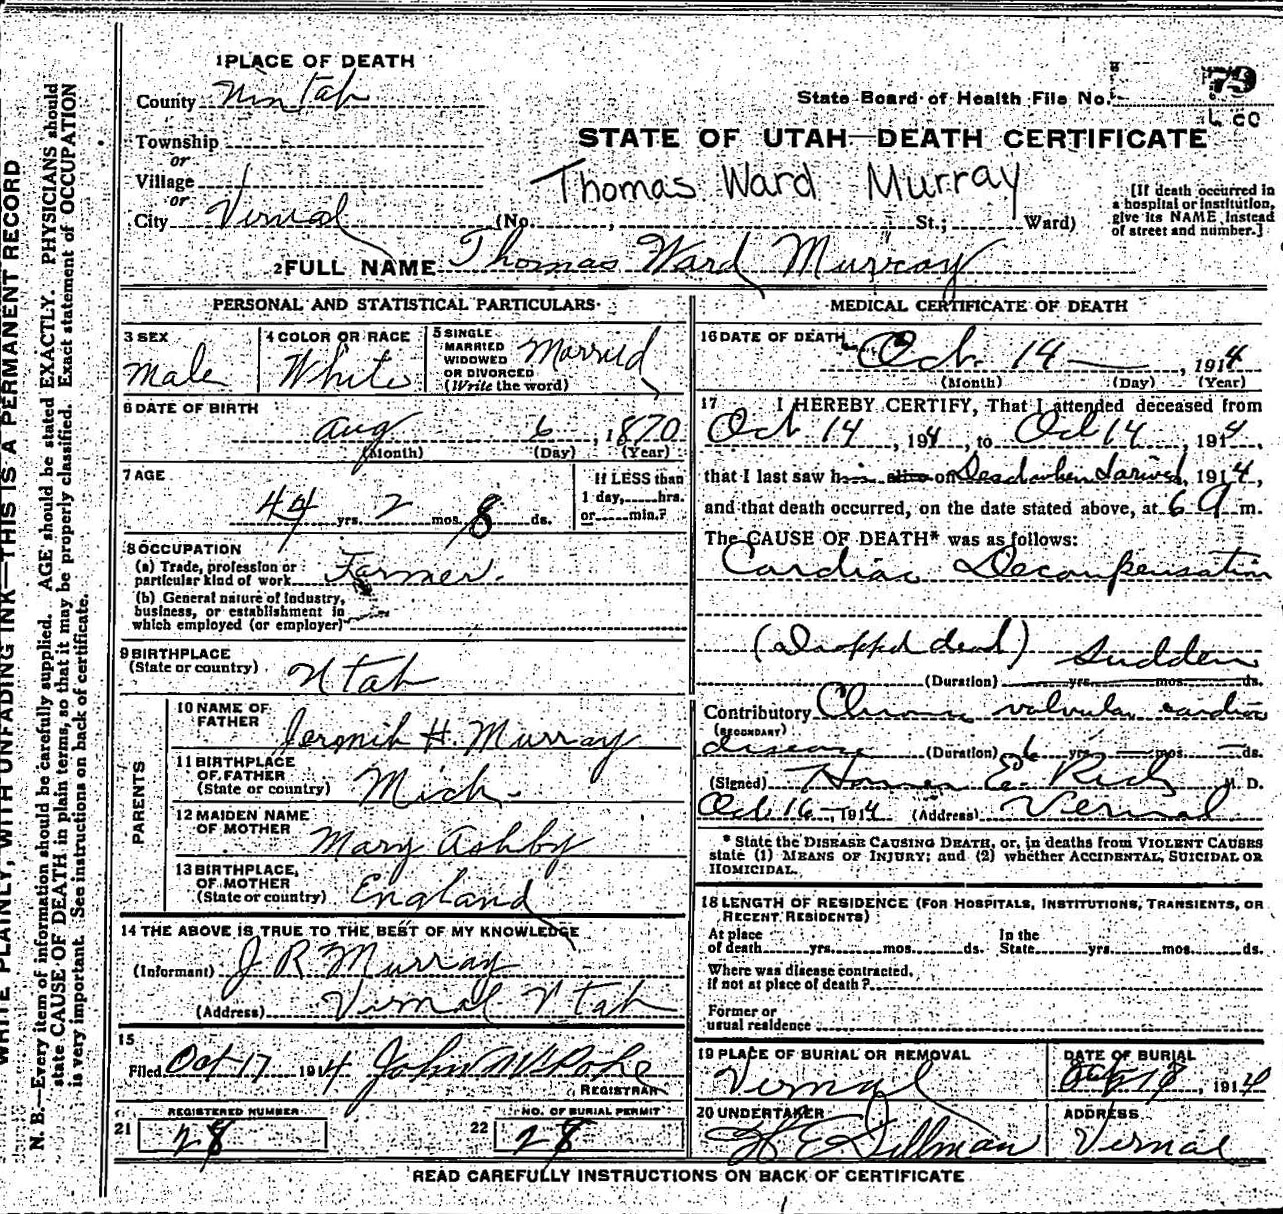 WRITE PLAINLY, WITH UNFADING INK—THIS IS A PERMANENT RECORD
N. B.—Every item of information should be carefully supplied. AGE should be stated EXACTLY. PHYSICIANS should
state CAUSE OF DEATH in plain terms, so that it may be properly classified. Exact statement of OCCUPATION
is very important. See instructions on back of certificate.
1 PLACE OF DEATH
County Uintah
Township
or
Village
or
City Vernal
State Board of Health File No. 79
STATE OF UTAH—DEATH CERTIFICATE
Thomas Ward Murray
(No. , St.; Ward)
[If death occurred in
a hospital or institution,
give its NAME instead
of street and number.]
2 FULL NAME Thomas Ward Murray
PERSONAL AND STATISTICAL PARTICULARS
3 SEX
Male
4 COLOR OR RACE
White
5 SINGLE
MARRIED
WIDOWED
OR DIVORCED
(Write the word)
Married
6 DATE OF BIRTH
Aug 6, 1870
(Month) (Day) (Year)
7 AGE
44 yrs. 2 mos. 8 ds.
If LESS than
1 day, hrs.
or min.?
8 OCCUPATION
(a) Trade, profession or
particular kind of work Farmer.
(b) General nature of industry,
business, or establishment in
which employed (or employer)
9 BIRTHPLACE
(State or country)
Utah
PARENTS
10 NAME OF
FATHER
H. Murray
11 BIRTHPLACE
OF FATHER
(State or country)
Mich.
12 MAIDEN NAME
OF MOTHER
Mary Ashby
13 BIRTHPLACE,
OF MOTHER
(State or country)
England
14 THE ABOVE IS TRUE TO THE BEST OF MY KNOWLEDGE
(Informant) J R Murray
(Address) Vernal Utah
15
Filed Oct 17 1914 John
REGISTRAR
REGISTERED NUMBER
21 28
NO. OF BURIAL PERMIT
22 28
MEDICAL CERTIFICATE OF DEATH
16 DATE OF DEATH
Oct. 14, 1914
(Month) (Day) (Year)
17 I HEREBY CERTIFY, That I attended deceased from
Oct 14, 1914, to Oct 14, 1914,
that I last saw him alive on Dead when I arived, 1914,
and that death occurred, on the date stated above, at 6 9 m.
The CAUSE OF DEATH* was as follows:
Cardiac Decompensation
(Dropped dead) Sudden
(Duration) yrs. mos. ds.
Contributory Chronic valvular cardiac
(SECONDARY)
disease (Duration) 6 yrs. mos. ds.
(Signed) Homer E. Rich M. D.
Oct 16, 1914 (Address) Vernal
* State the DISEASE CAUSING DEATH, or, in deaths from VIOLENT CAUSES
state (1) MEANS OF INJURY; and (2) whether ACCIDENTAL, SUICIDAL OR
HOMICIDAL.
18 LENGTH OF RESIDENCE (FOR HOSPITALS, INSTITUTIONS, TRANSIENTS, OR
RECENT RESIDENTS)
At place
of death yrs. mos. ds.
In the
State yrs. mos. ds.
Where was disease contracted,
if not at place of death?
Former or
usual residence
19 PLACE OF BURIAL OR REMOVAL
Vernal
DATE OF BURIAL
Oct 18, 1914
20 UNDERTAKER
Dillman
ADDRESS
Vernal
READ CAREFULLY INSTRUCTIONS ON BACK OF CERTIFICATE